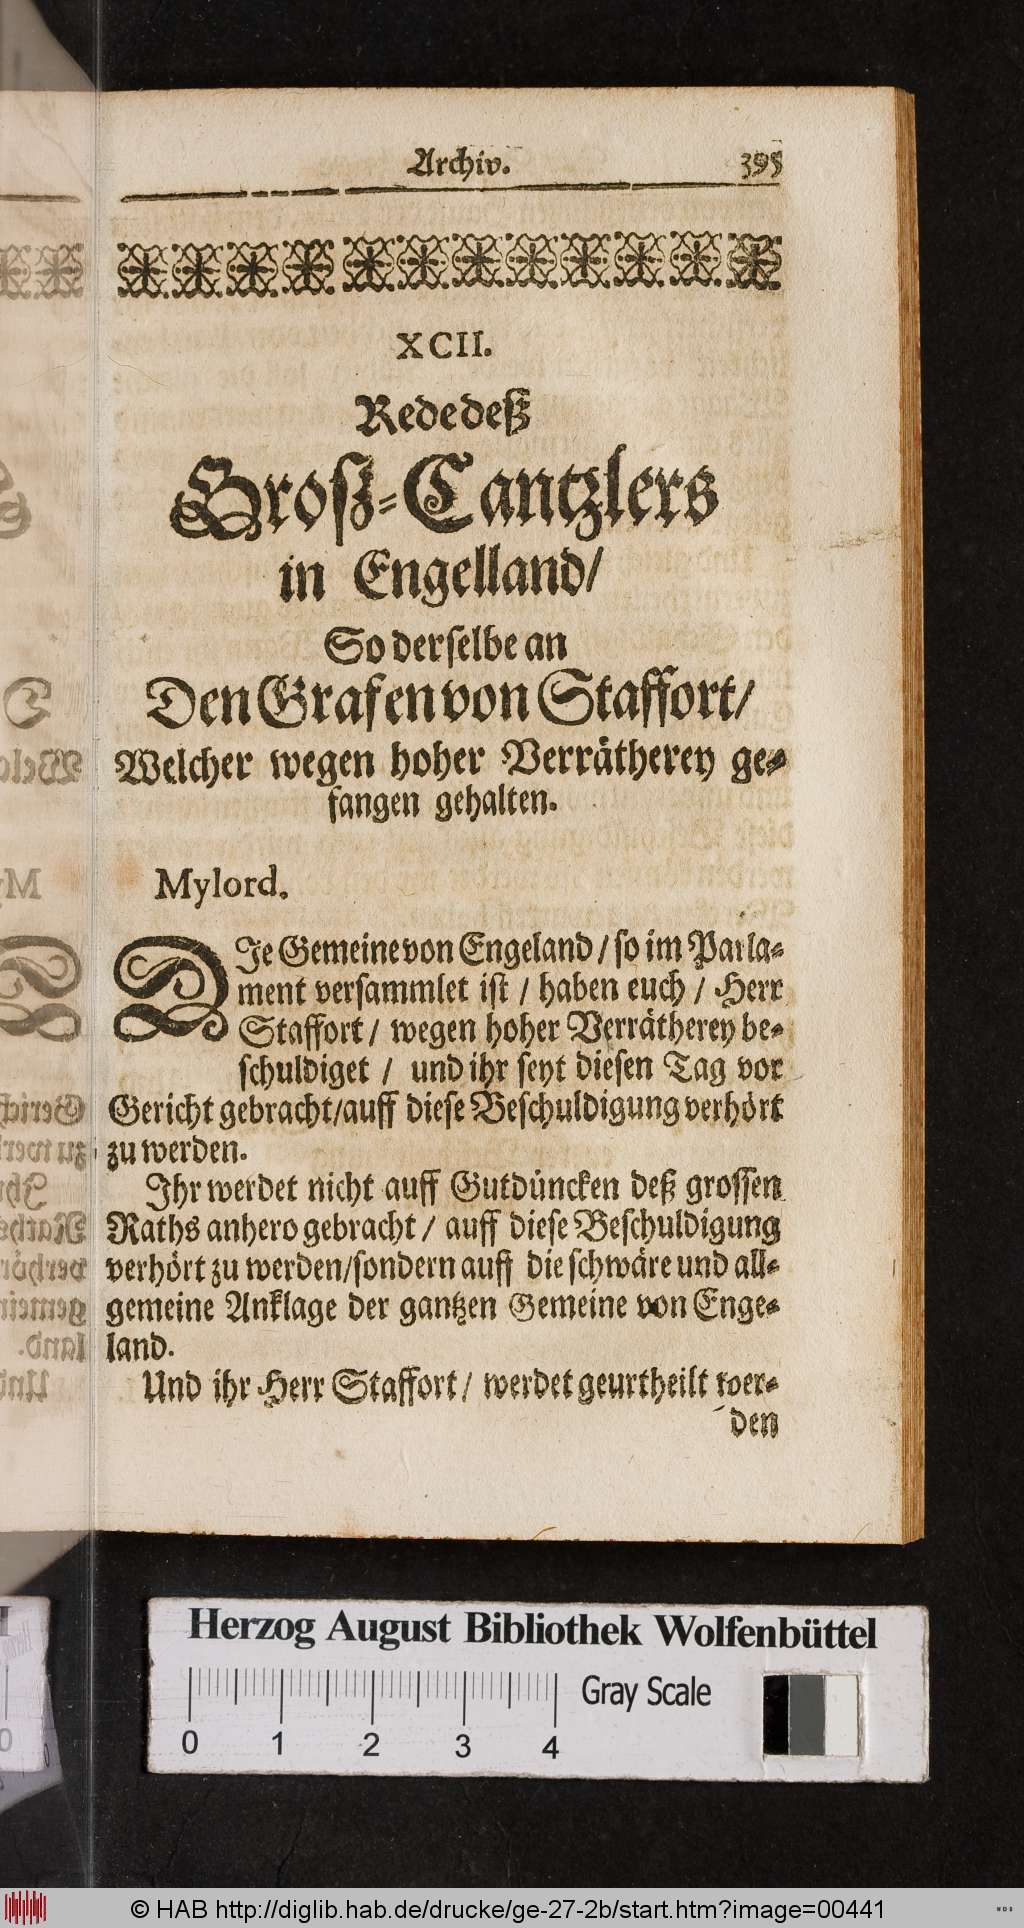 Archiv. 395
XCII.
Rede deß
Grosz-Cantzlers
in Engelland/
So derselbe an
Den Grafen von Staffort/
Welcher wegen hoher Verrätherey ge-
fangen gehalten.
Mylord.
DIe Gemeine von Engeland / so im Parla-
ment versammlet ist / haben euch / Herr
Staffort / wegen hoher Verrätherey be-
schuldiget / und ihr seyt diesen Tag vor
Gericht gebracht/auff diese Beschuldigung verhört
zu werden.
Ihr werdet nicht auff Gutdüncken deß grossen
Raths anhero gebracht / auff diese Beschuldigung
verhört zu werden/sondern auff die schwäre und all-
gemeine Anklage der gantzen Gemeine von Enge-
land.
Und ihr Herr Staffort / werdet geurtheilt wer-
den
Herzog August Bibliothek Wolfenbüttel
0 1 2 3 4 Gray Scale
© HAB http://diglib.hab.de/drucke/ge-27-2b/start.htm?image=00441